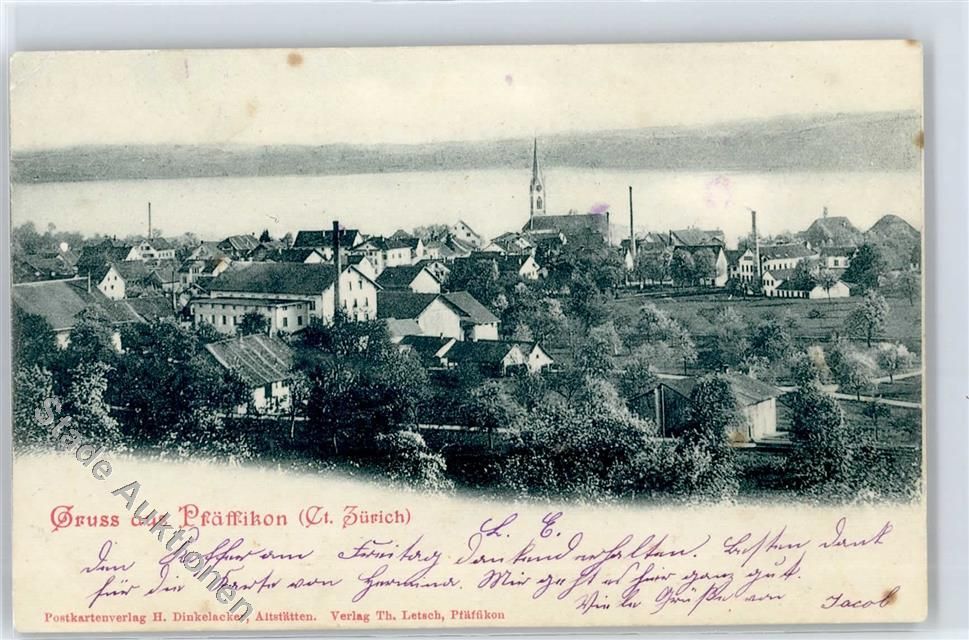 Gruss aus Pfäffikon (Ct. Zürich)
L. E.
den Koffer am Freitag dankend erhalten. Besten dank
für die Karte von Hermina. Mir geht es hier ganz gut.
Viele Grüße von Jacob
Postkartenverlag H. Dinkelacker, Altstätten. Verlag Th. Letsch, Pfäffikon
Stade Auktionen